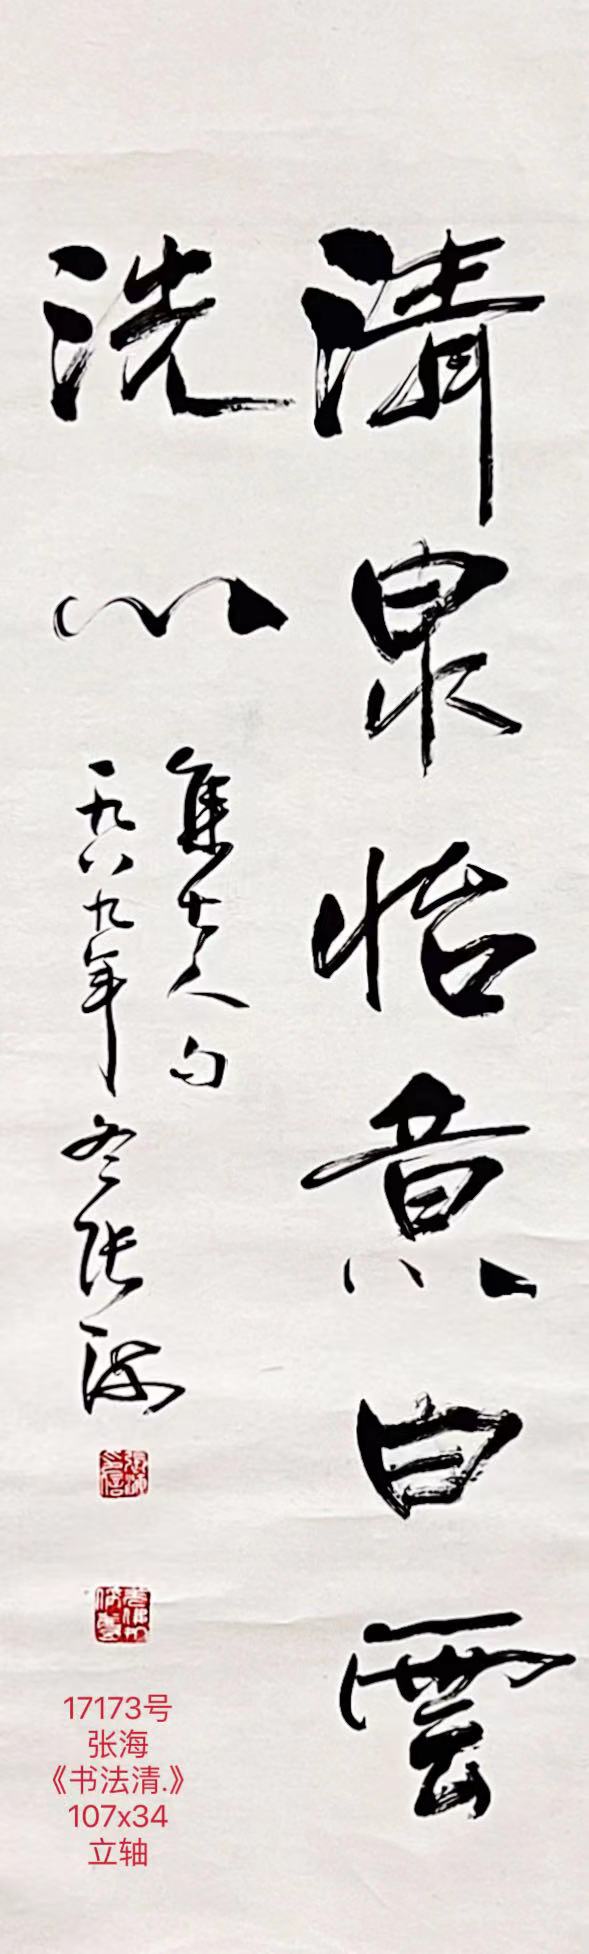 清泉怡意白雲
洗心
集古人句
一九八九年冬張海
17173号
张海
《书法清.》
107x34
立轴